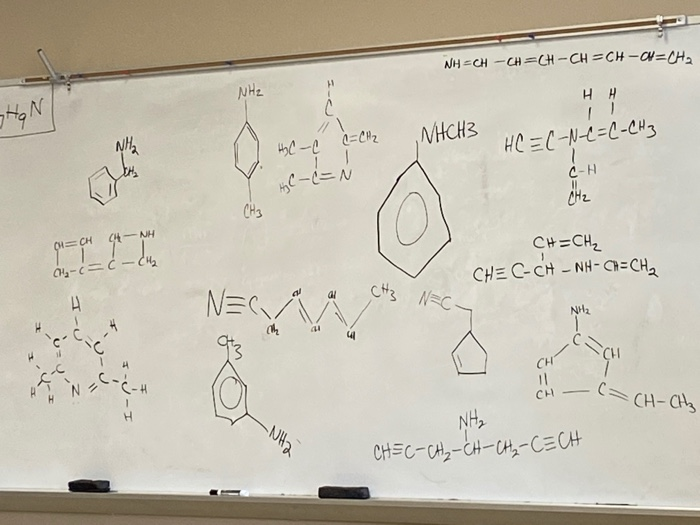 NH=CH-CH=CH-CH=CH-CH=CH2
H9N
NH2
CH2
NH2
CH3
H
C
H3C-C
C=CH2
H3C-C=N
NHCH3
H H
HC≡C-N-C=C-CH3
C-H
CH2
CH=CH
CH-NH
CH2-C=C-CH2
CH=CH2
CH≡C-CH-NH-CH=CH2
N≡C
CH2
CH
CH
CH
CH
CH3
N≡C
NH2
C
CH
CH
CH
C=CH-CH3
H
H C H
C C
H
C C H
H H N C-H
H
CH3
NH2
NH2
CH≡C-CH2-CH-CH2-C≡CH